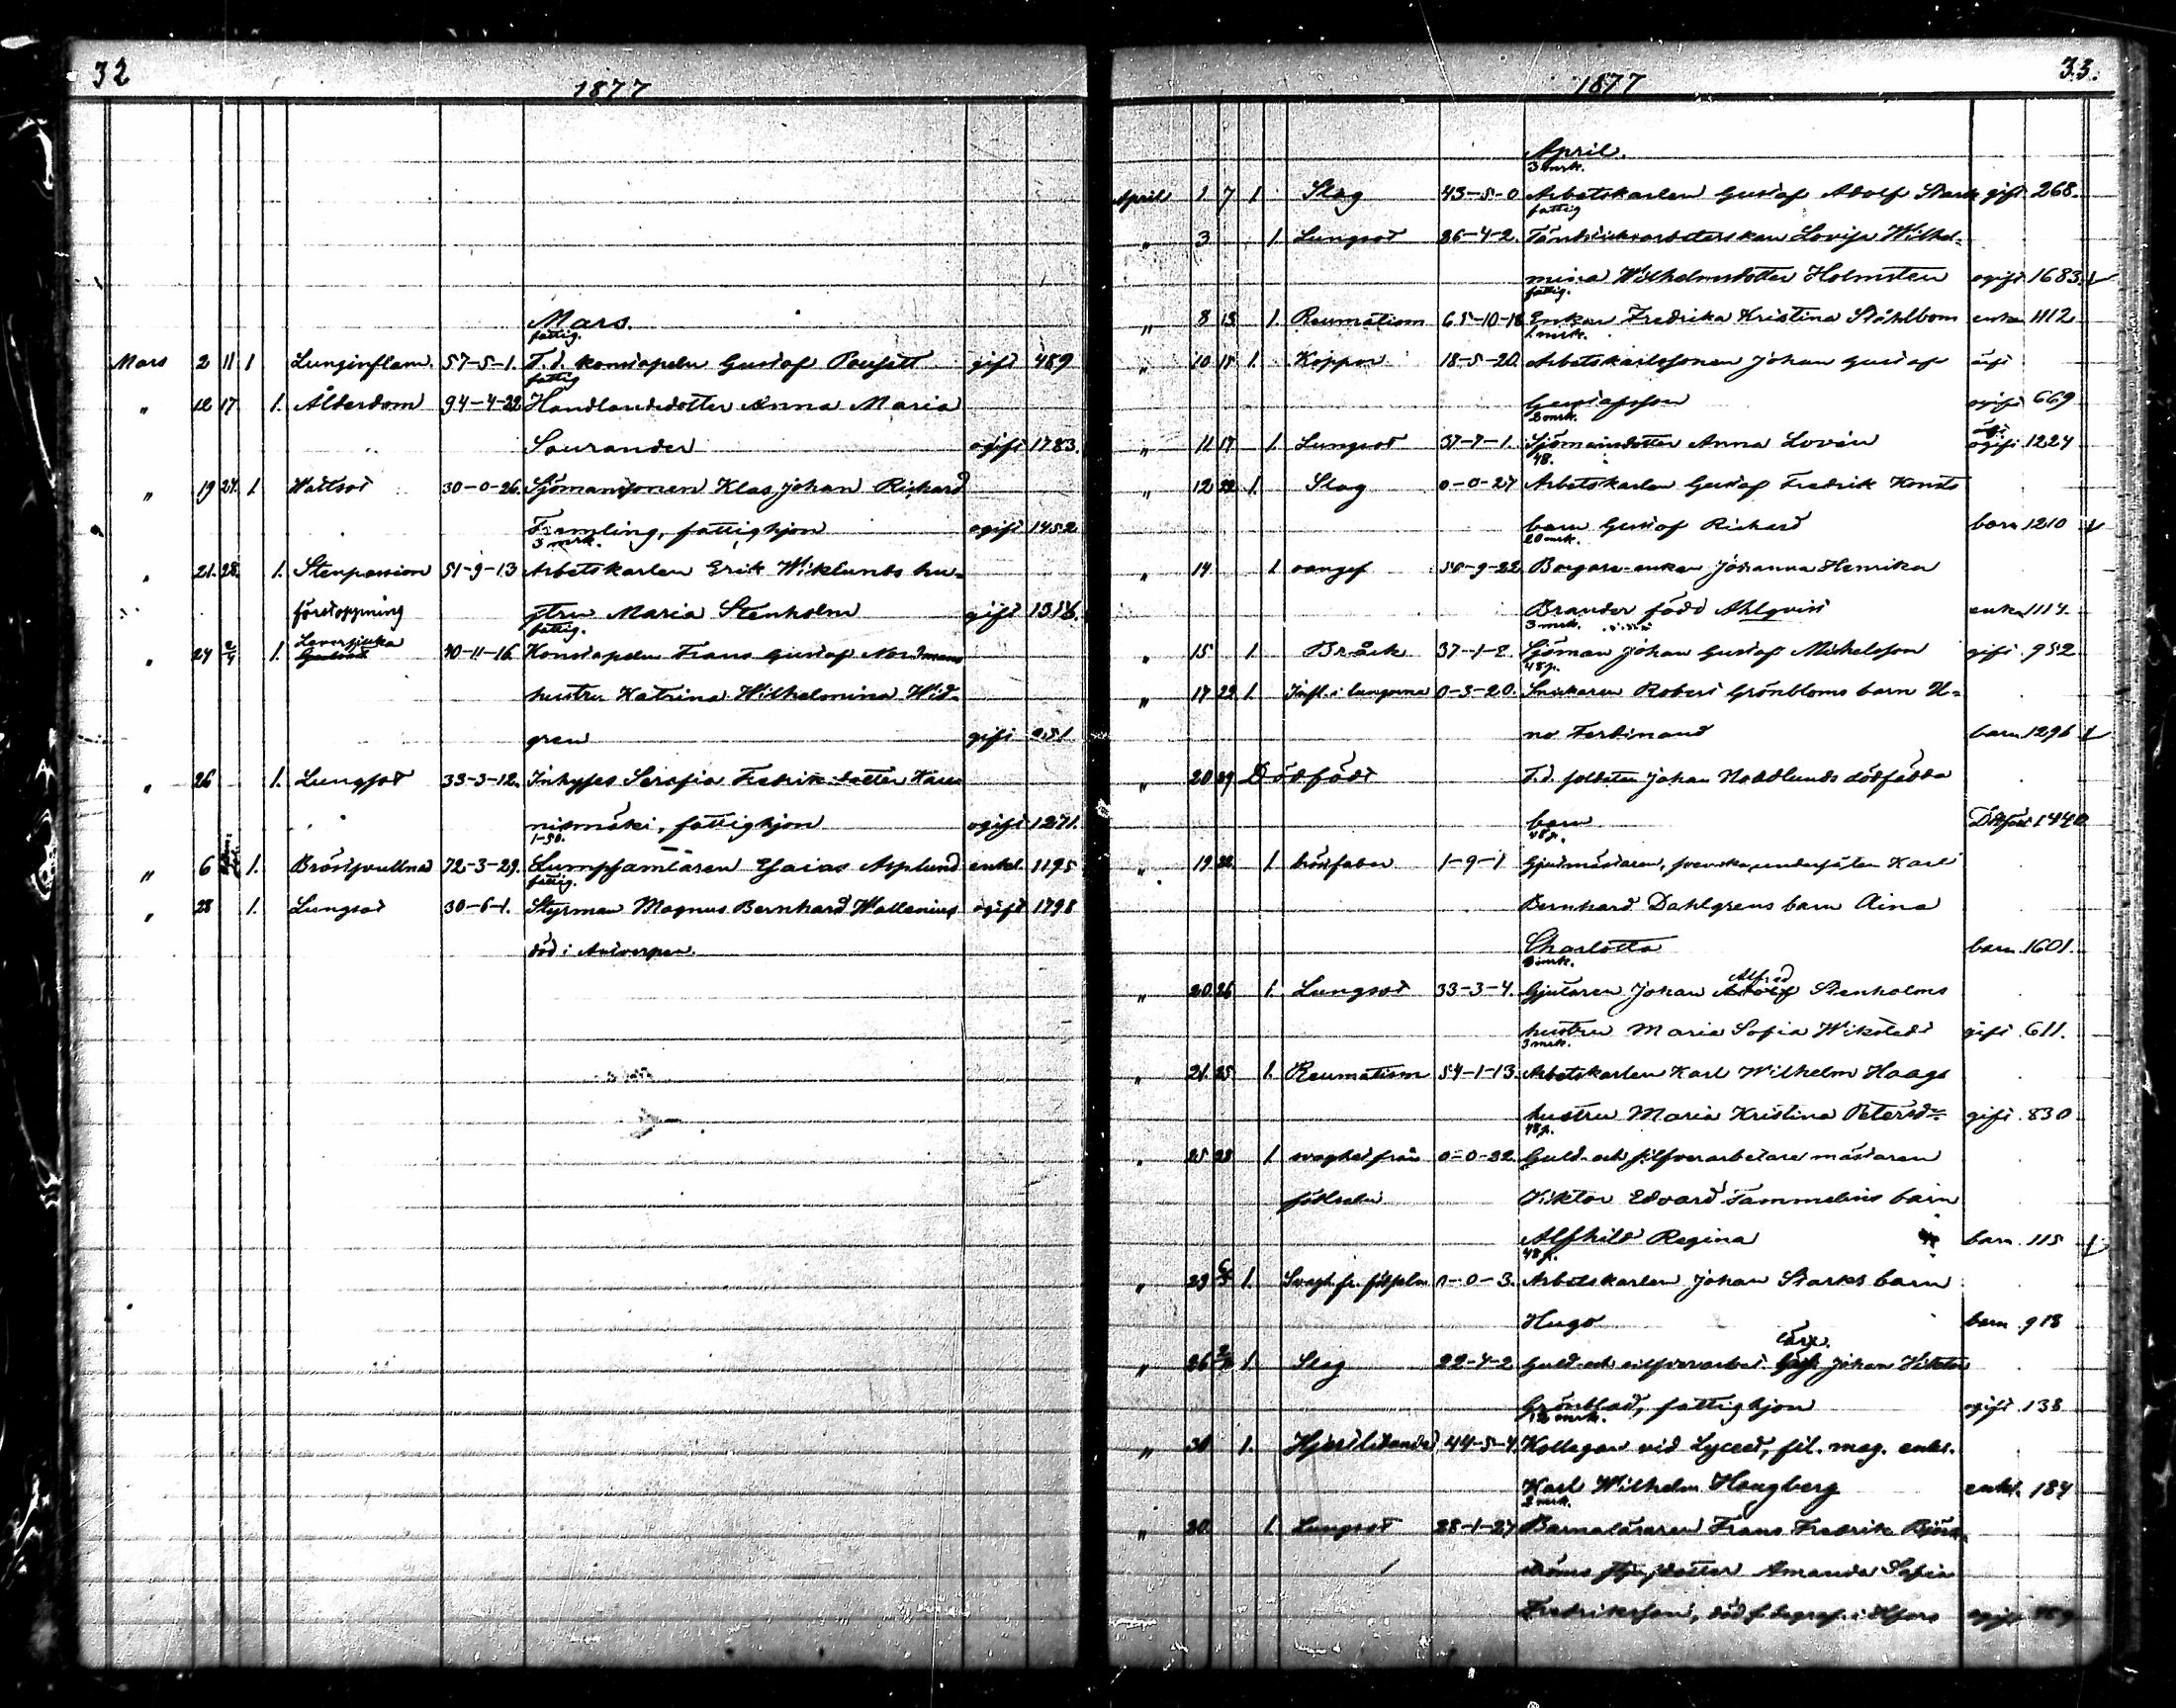 32
1877
Mars.
fattig.
Mars 2 11 1 Lunginflam. 57-5-1. F. d. konstapeln Gustaf gift 489
fattig
" 12 17 1. Ålderdom 94-4-22 Handlandedotter Anna Maria
Saurander ogift 1783.
" 19 24. 1 Wattsot 30-0-26. Sjömanssonen Klas Johan Richard
Framling, fattighjon ogift 1452
3 mrk.
" 21. 28. 1. Stenpassion 51-9-13 Arbetskarlen Erik Wiklunds hu-
förstoppning stru Maria Stenholm gift
fattig.
" 24 2/4 1. Leversjuka 40-11-16 Konstapeln Frans Gustaf Nordmans
hustru Katrina Wilhelmina Wid-
gren gift 251
" 26 1. Lungsot 33-3-12. Inhyses Serafia Fredriksdotter
, fattighjon ogift 1271.
1-50.
" 6 1. 72-3-29. Lumpsamlaren Esaias Asplund enkl. 1195
fattig.
" 28 1. Lungsot 30-6-1. Styrman Magnus Bernhard Wallenius ogift 1798
död i Antverpen.
33.
1877
April.
3 mrk.
April 1 7 1 Slag 43-5-0 Arbetskarlen Gustaf Adolf Stark gift 268.
fattig
" 3 1 Lungsot 36-4-2. Lovisa Wilhel-
mina Wilhelmsdotter Holmsten ogift 1683.
fattig.
" 8 15 1. Reumatism 65-10-18 Enkan Fredrika Kristina Ståhlbom enka 1112
1 mrk.
" 10 15 1. Koppor 18-5-20. Arbetskarlssonen Johan Gustaf
Gustafsson ogift 669
3 mrk.
" 11 17 1. Lungsot 37-7-1. Sjömansdotter Anna Lovén ogift 1224
48.
" 12 22 1. Slag 0-0-27 Arbetskarlen Gustaf Fredrik
barn Gustaf Richard barn 1210
20 mrk.
" 14 1 50-9-22 Borgare-enkan Johanna Henrika
Brander född Ahlqvist enka 1114.
3 mrk.
" 15 1. Bråck 37-1-2. Sjöman Johan Gustaf Mickelsson gift 952
48 p.
" 17 22 1. Infl. i lungorna 0-3-20. Snickaren Robert Grönbloms barn U-
no Ferdinand barn 1296
" 20 29 Dödfödt F. d. soldaten Johan Nordlunds dödfödda
barn Dödfödt 1440
48 p.
" 19 22 1 1-9-1 Gjutmästaren, svenska undersåten Karl
Bernhard Dahlgrens barn Aina
Charlotta barn 1601.
3 mrk.
" 20 26 1. Lungsot 33-3-4. Gjutaren Johan Alfred Stenholms
hustru Maria Sofia Wikstedt gift 611.
3 mrk.
" 21. 25 1. Reumatism 54-1-13. Arbetskarlen Karl Wilhelm Haags
hustru Maria Kristina Petersdr gift 830
48 p.
" 25 28 1 svaghet från 0-0-22. Guld- och silfverarbetare mästaren
födseln Viktor Edvard Tammelins barn
Alfhild Regina barn 115
48 p.
" 29 1. Svagh. fr. födseln 0-0-3. Arbetskarlen Johan Starks barn
Hugo barn 918
" 26 1. Slag 22-4-2 Guld- och silfverarbet. Johan Viktor
Grönblad, fattighjon ogift 138
12 mrk.
" 30 1. Hjertlidande 44-5-4. Kollegan vid Lyceet, fil. mag. enkl.
Karl Wilhelm Hougberg enkl. 184
3 mrk.
" 30 1. Lungsot 28-1-27 Barnaläraren Frans Fredrik Björk-
ströms Amanda Sofia
Fredriksson, död i Hfors ogift